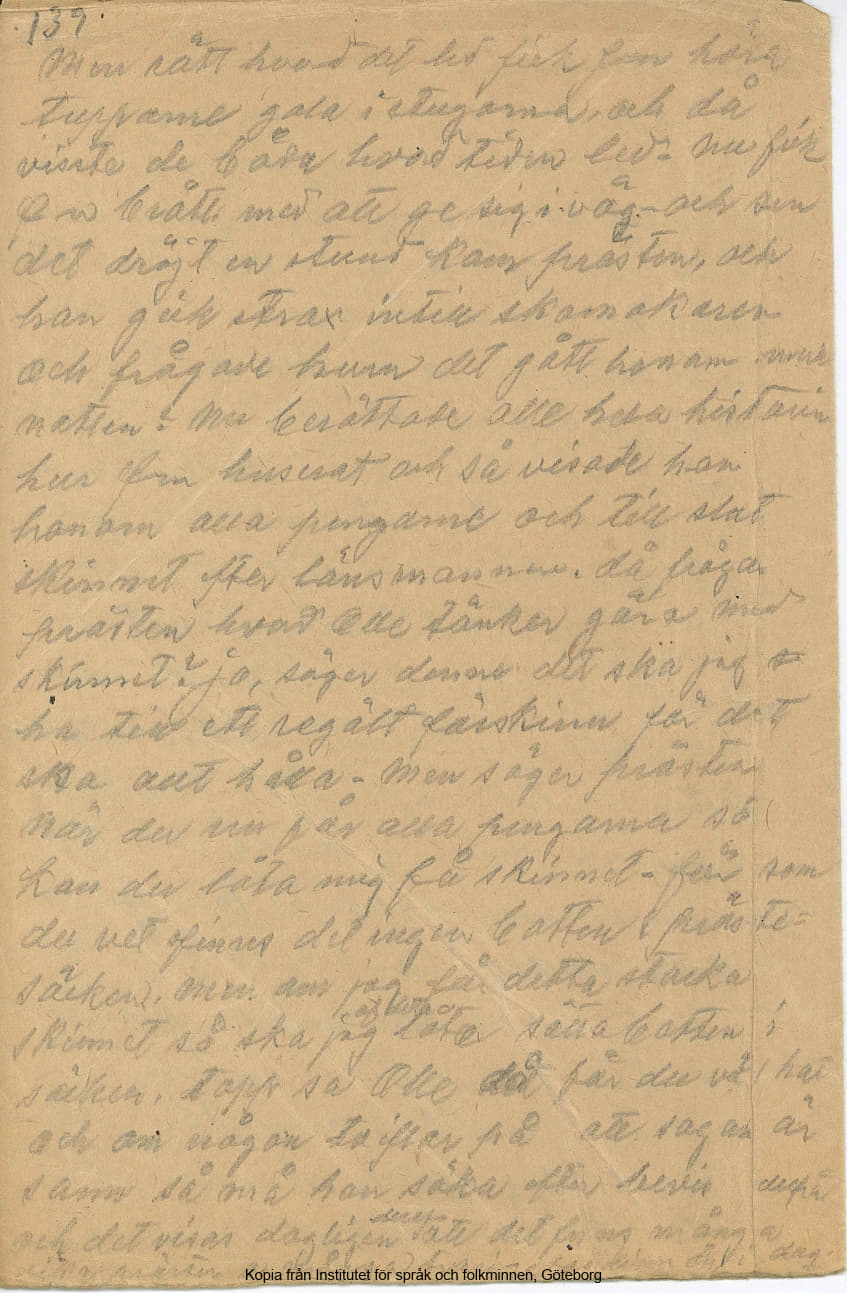 139.
Men rätt hvad det led fick fan höra
tupparne gala i stugorna, och då
visste de båda hvad tiden led - Nu fick
fan brått med att ge sig i väg - och sen
det dröjt en stund kom prästen, och
han gick strax intill skomakaren
och frågade hurn det gått honom unde
natten? Nu berättade Olle hela historin
hur fan huserat och så visade han
honom alla pengarne och till slut
skinnet efter länsmannen. då frågar
prästen hvad Olle tänker göra med
skinnet? jo, säger denne det ska jag
ha till ett regält förskinn för det
ska att hålla - Men säger prästen
När du nu får alla pengarna så
kan du låta mig få skinnet - för som
du vet finnes det ingen botten i präste=
säcken, men om jag får detta starka
skinnet så ska jag låta sätta botten i
säcken. Topp sa Olle då får du
och om någon tviflar på att sagan är
sann så må han söka efter bevis
och det visar dagligen att det fynns många
Kopia från Institutet för språk och folkminnen, Göteborg